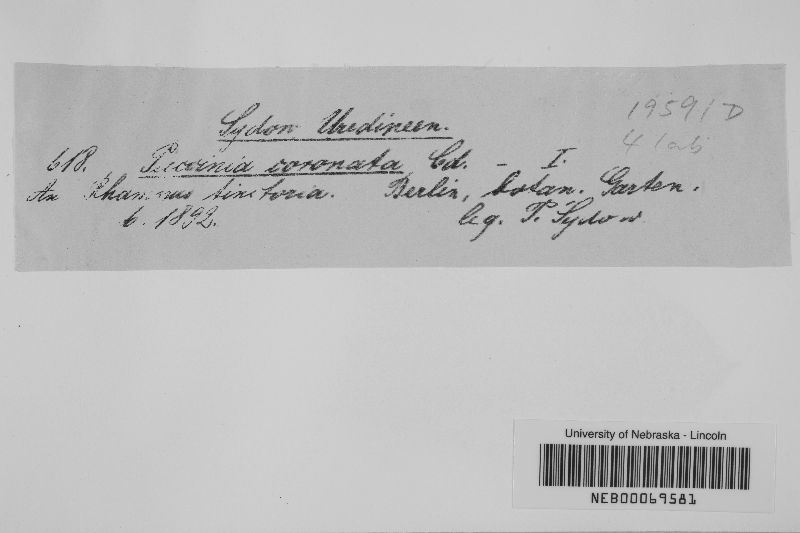 Sydow Uredineen.
19591 D
4 lab
618. Puccinia coronata Cd. - I.
An Rhamnus tinctoria. Berlin, botan. Garten.
6. 1892. leg. P. Sydow
University of Nebraska - Lincoln
NEB00069581